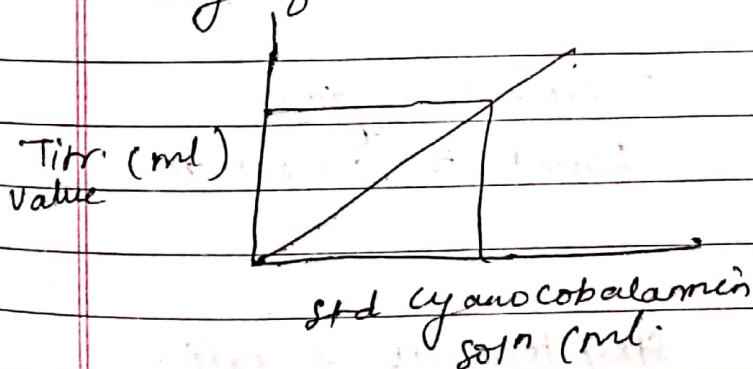 Titr. (ml)
value
std cyanocobalamin
solⁿ (ml.